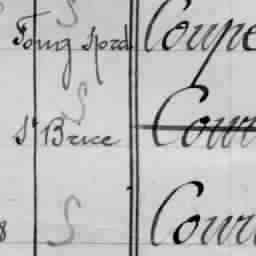 S
Foug Nord Coupe
S
St Brice Cour
8 S Cour